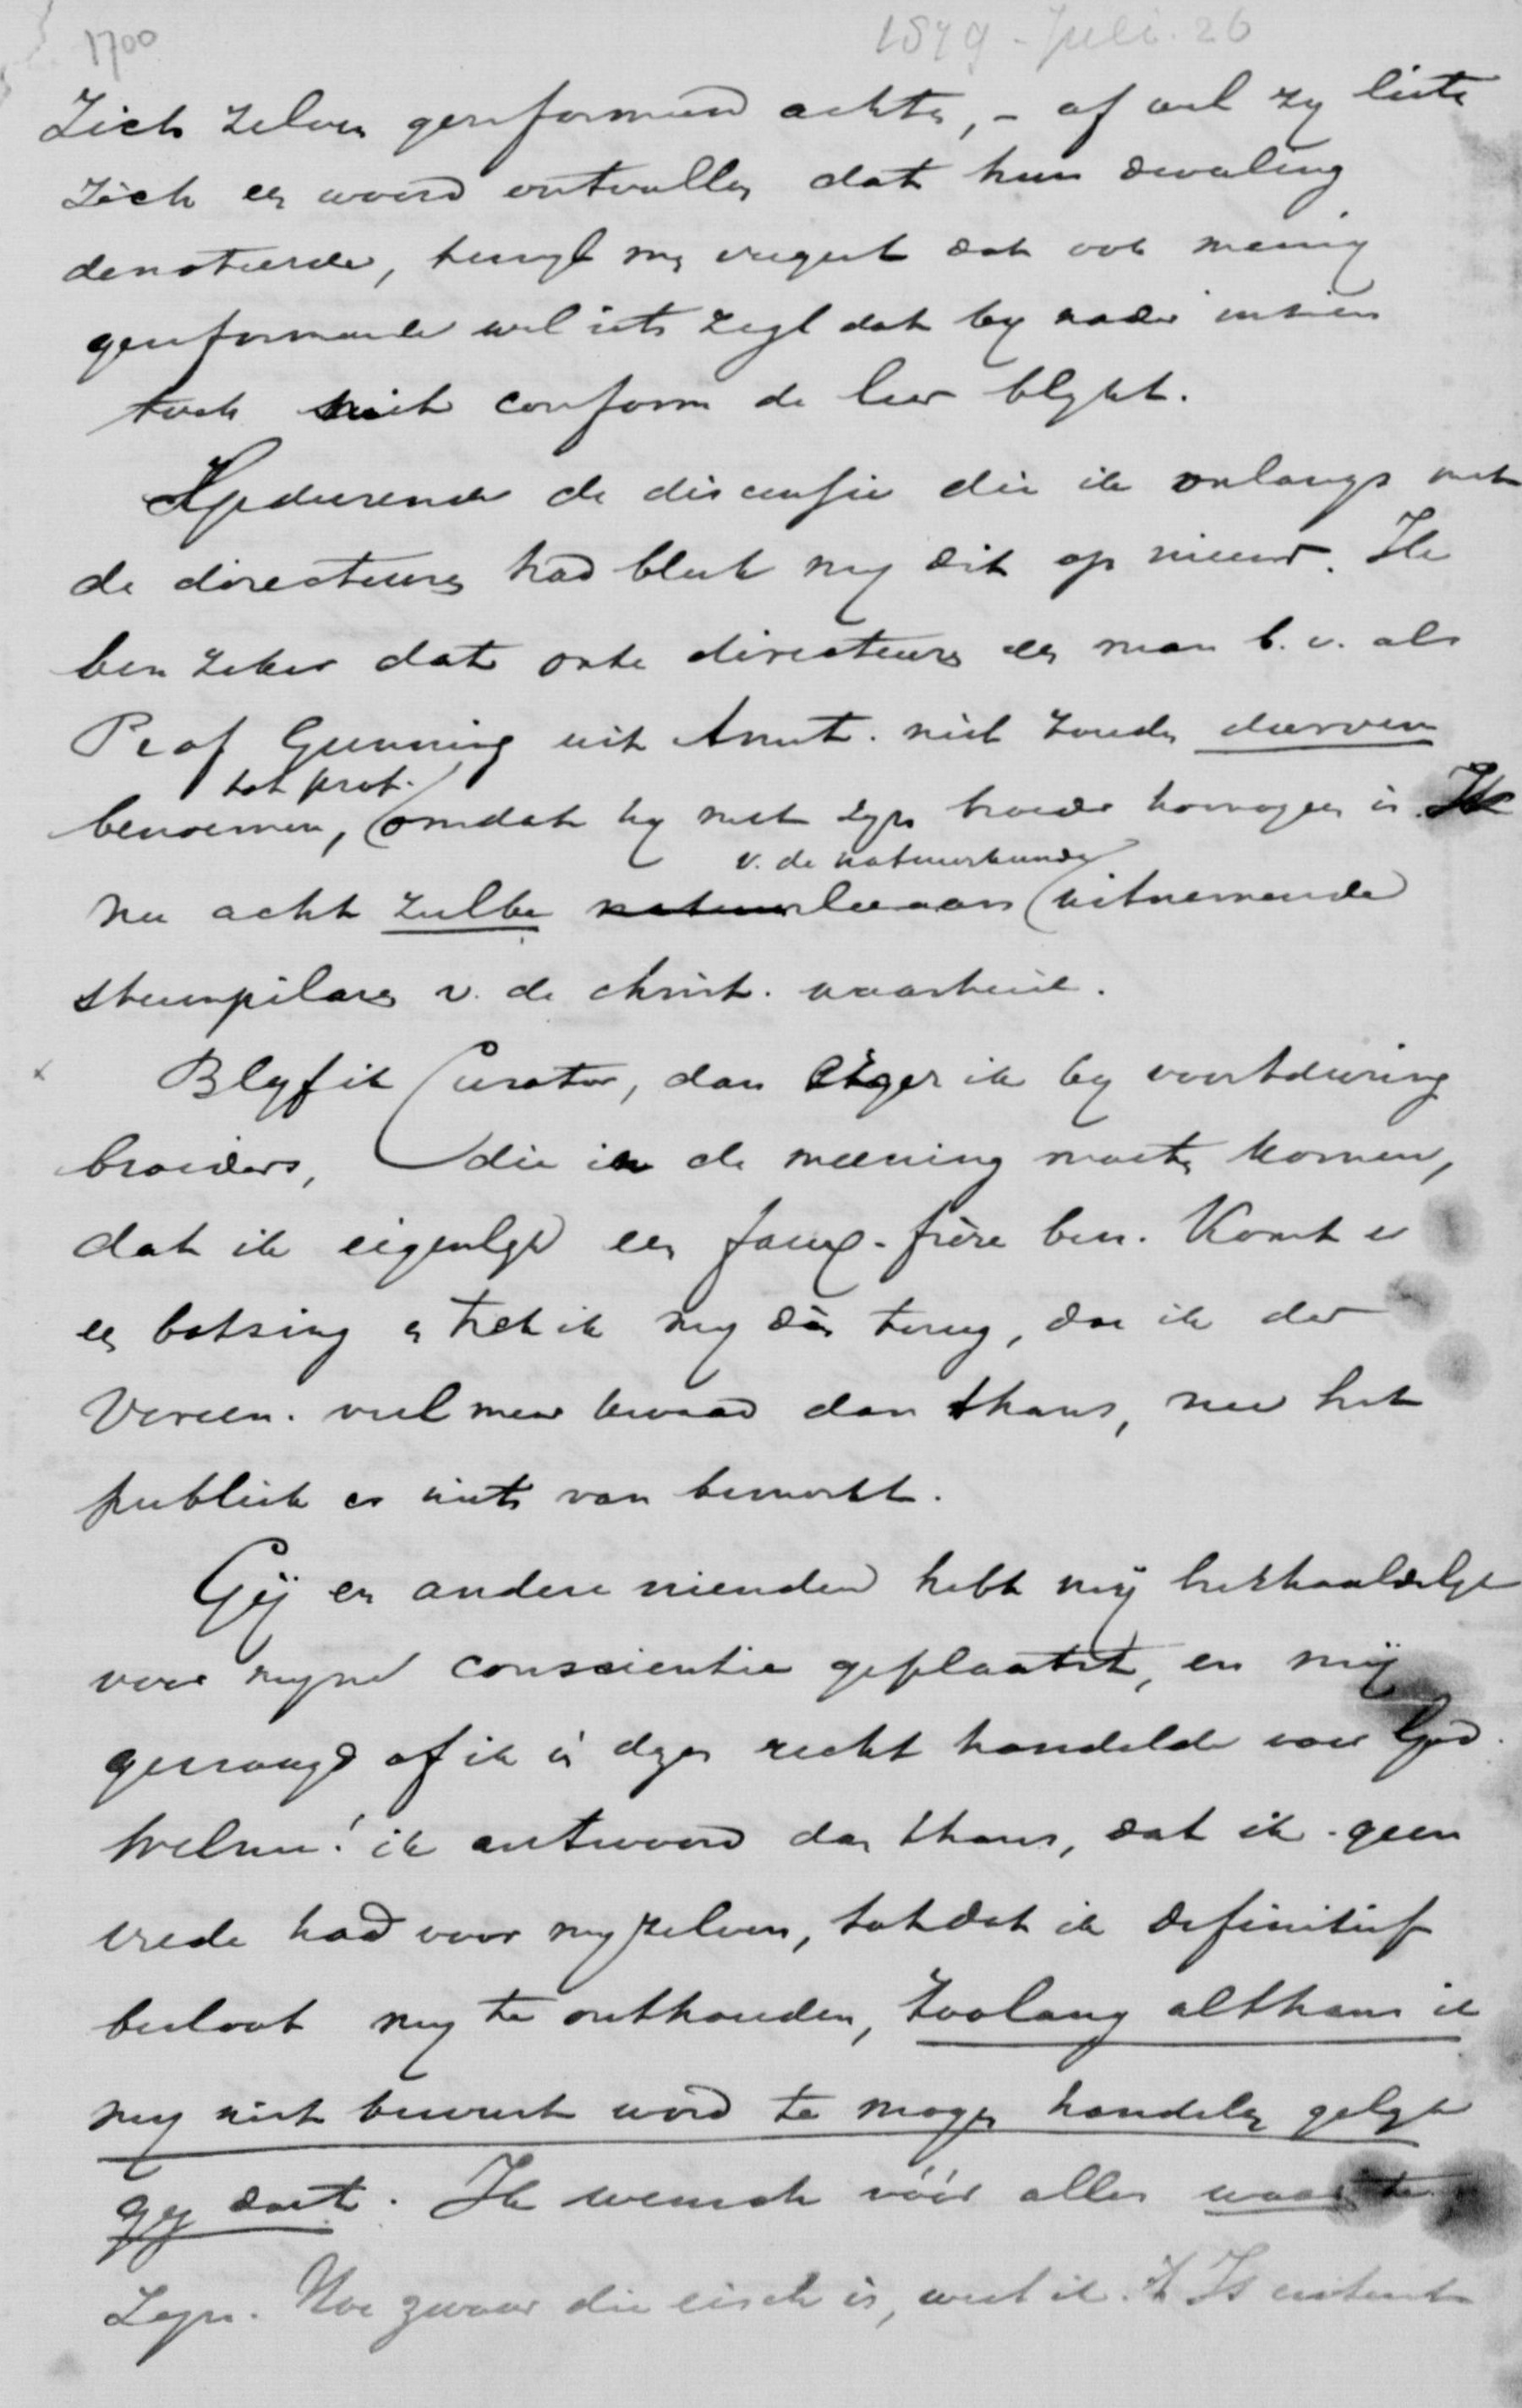 1700
1879 - Juli. 26
Zich zelven gereformeerd achten, - of wel zy lieten
zich een woord ontvallen dat hun dwaling
denoteerde, terwyl my vergeet dat ook menig
gereformeerde wel iets zegt dat by nader inzien
toch niet conform de leer blykt.
Gedurende de discussie die ik onlangs met
de directeuren had bleek my dit op nieuw. Ik
ben zeker dat onze directeuren een man b.v. als
Prof Gunning uit Amst. niet zouden durven
tot prof.
benoemen, omdat hy met zyn broeder homogeen is. Ik
v. de natuurkunde
nu acht zulke natuurleeraars uitnemende
steunpilaren v. de christ. waarheid.
x Blyf ik Curator, dan erger ik by voortduring
broeders, die in de meening moeten komen,
dat ik eigenlyk een faux-frère ben. Komt er
een botsing en trek ik my dàn terug, doe ik der
Vereen. veel meer kwaad dan thans, nu het
publiek er niets van bemerkt.
Gÿ en andere vrienden hebt mÿ herhaaldelyk
voor myne conscientie geplaatst, en mÿ
gevraagd of ik in dezen recht handelde voor God.
Welnu! ik antwoord dan thans, dat ik geen
vrede had voor my zelven, totdat ik definitief
besloot my te onthouden, zoolang althans ik
my niet bewust word te mogen handelen gelyk
gy doet. Ik wensch vóór alles waar te
Zyn. Hoe zwaar die eisch is, weet ik. Ik